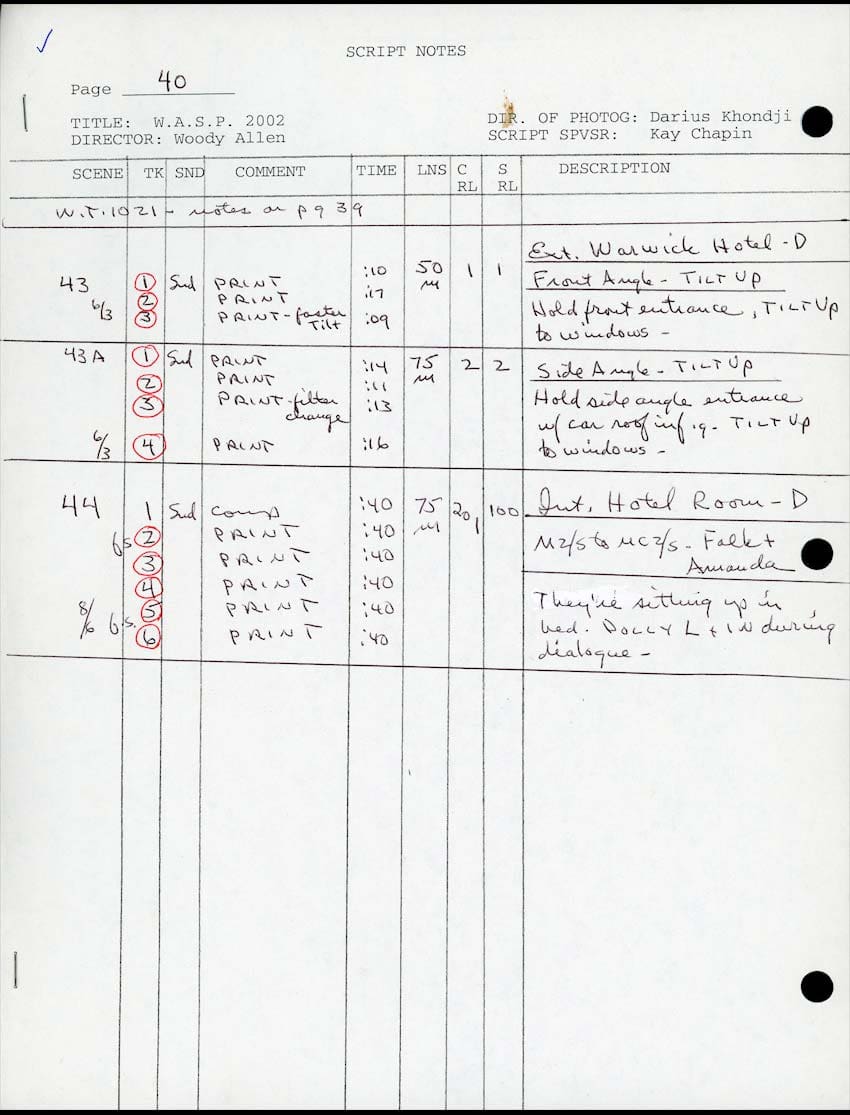 SCRIPT NOTES
Page 40
TITLE: W.A.S.P. 2002
DIRECTOR: Woody Allen
DIR. OF PHOTOG: Darius Khondji
SCRIPT SPVSR: Kay Chapin
SCENE TK SND COMMENT TIME LNS C RL S RL DESCRIPTION
W.T. 1021 - notes on pg 39
Ext. Warwick Hotel - D
43 1 Snd PRINT :10 50 M 1 1 Front Angle - TILT UP
6/3 2 PRINT :17 Hold front entrance, TILT UP
3 PRINT - faster Tilt :09 to windows -
43A 1 Snd PRINT :14 75 M 2 2 Side Angle - TILT UP
2 PRINT :11
3 PRINT - filter change :13 Hold side angle entrance
w/ car roof in f.g. TILT UP
6/3 4 PRINT :16 to windows -
44 1 Snd Comp :40 75 M 201 100 Int. Hotel Room - D
2 PRINT :40
M2/S to MC2/S - Falk +
3 PRINT :40 Amanda
4 PRINT :40
8/6 5 PRINT :40 They're sitting up in
6 PRINT :40 bed. DOLLY L + IN during
dialogue -